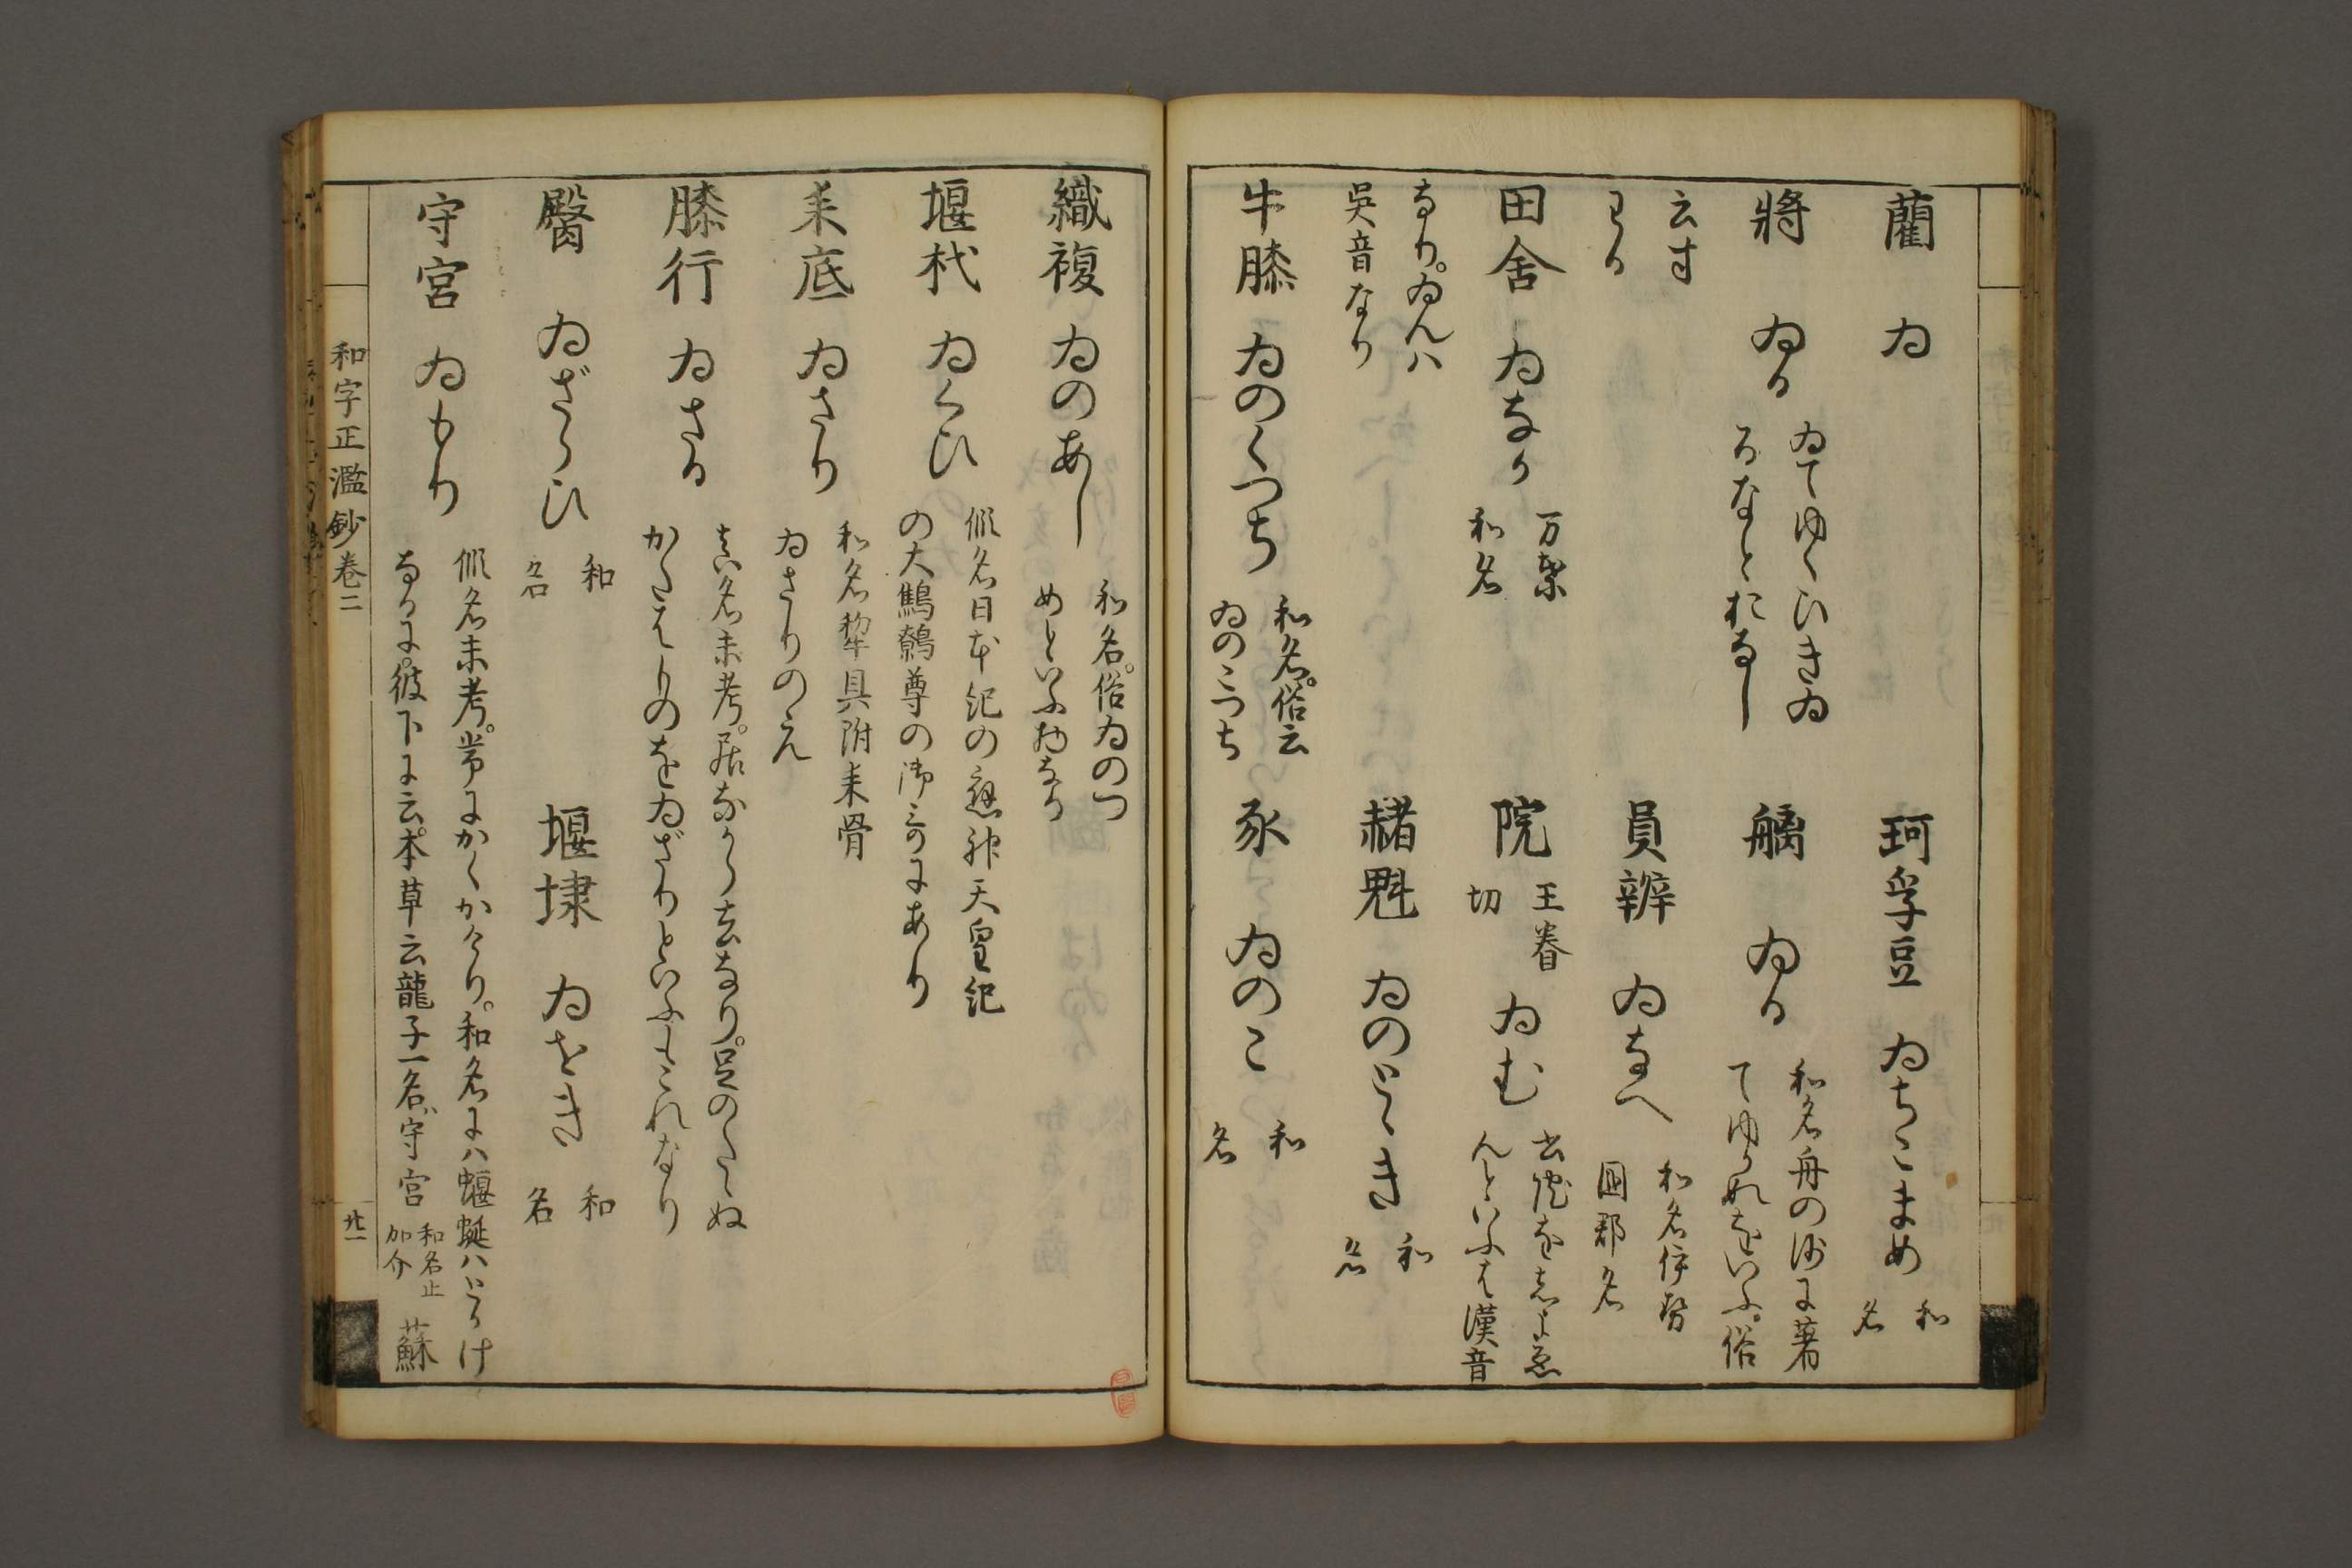 藺 ゐ
珂孚豆 ゐちこまめ 和名
將 ゐる ゐてゆくひきゐ
るなとおなし
艑 ゐる 和名舟の沙に著
てゆかぬをいふ。俗
云す
わる
員辨 ゐなへ 和名伊勢
國郡名
田舎 ゐなか 万葉
和名
院 王眷
切 ゐむ
んといふは漢音
なり。ゐんハ
呉音なり
赭魁 ゐのとゝき 和名
牛膝 ゐのくつち 和名。俗云
ゐのこつち
豕 ゐのこ 和名
織複 ゐのあし 和名。俗ゐのつ
めといふ物なり
堰杙 ゐくひ 假名日本紀の應神天皇紀
の大鷦鷯尊の御哥にあり
耒底 ゐさり 和名犂具附耒骨
ゐさりのえ
膝行 ゐさる 真名未考。居なから去なり。足のたゝぬ
かたはものをゐざりといふもこれなり
臀 ゐざらひ 和名
堰埭 ゐせき 和名
守宮 ゐもり 假名未考。常にかくかけり。和名にハ蝘蜓ハとかけ
なるに。彼下に云。本草云龍子一名ハ守宮 和名止
加介 蘇
和字正濫鈔卷二
廿一